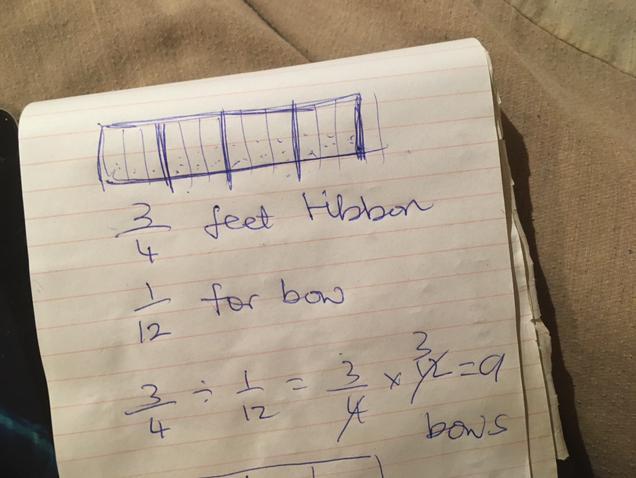 3/4 feet ribbon
1/12 for bow
3/4 ÷ 1/12 = 3/4 × 12 3 = 9
bows